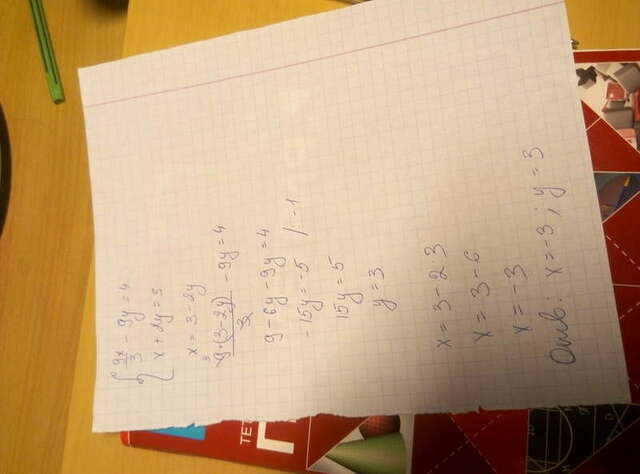 9x/3 - 9y = 4
x + 2y = 3
x = 3 - 2y
9·(3-2y)/3 - 9y = 4
9 - 6y - 9y = 4
-15y = -5 / -1
15y = 5
y = 3
x = 3 - 2·3
x = 3 - 6
x = -3
Отв: x = -3; y = 3
ТЕТ